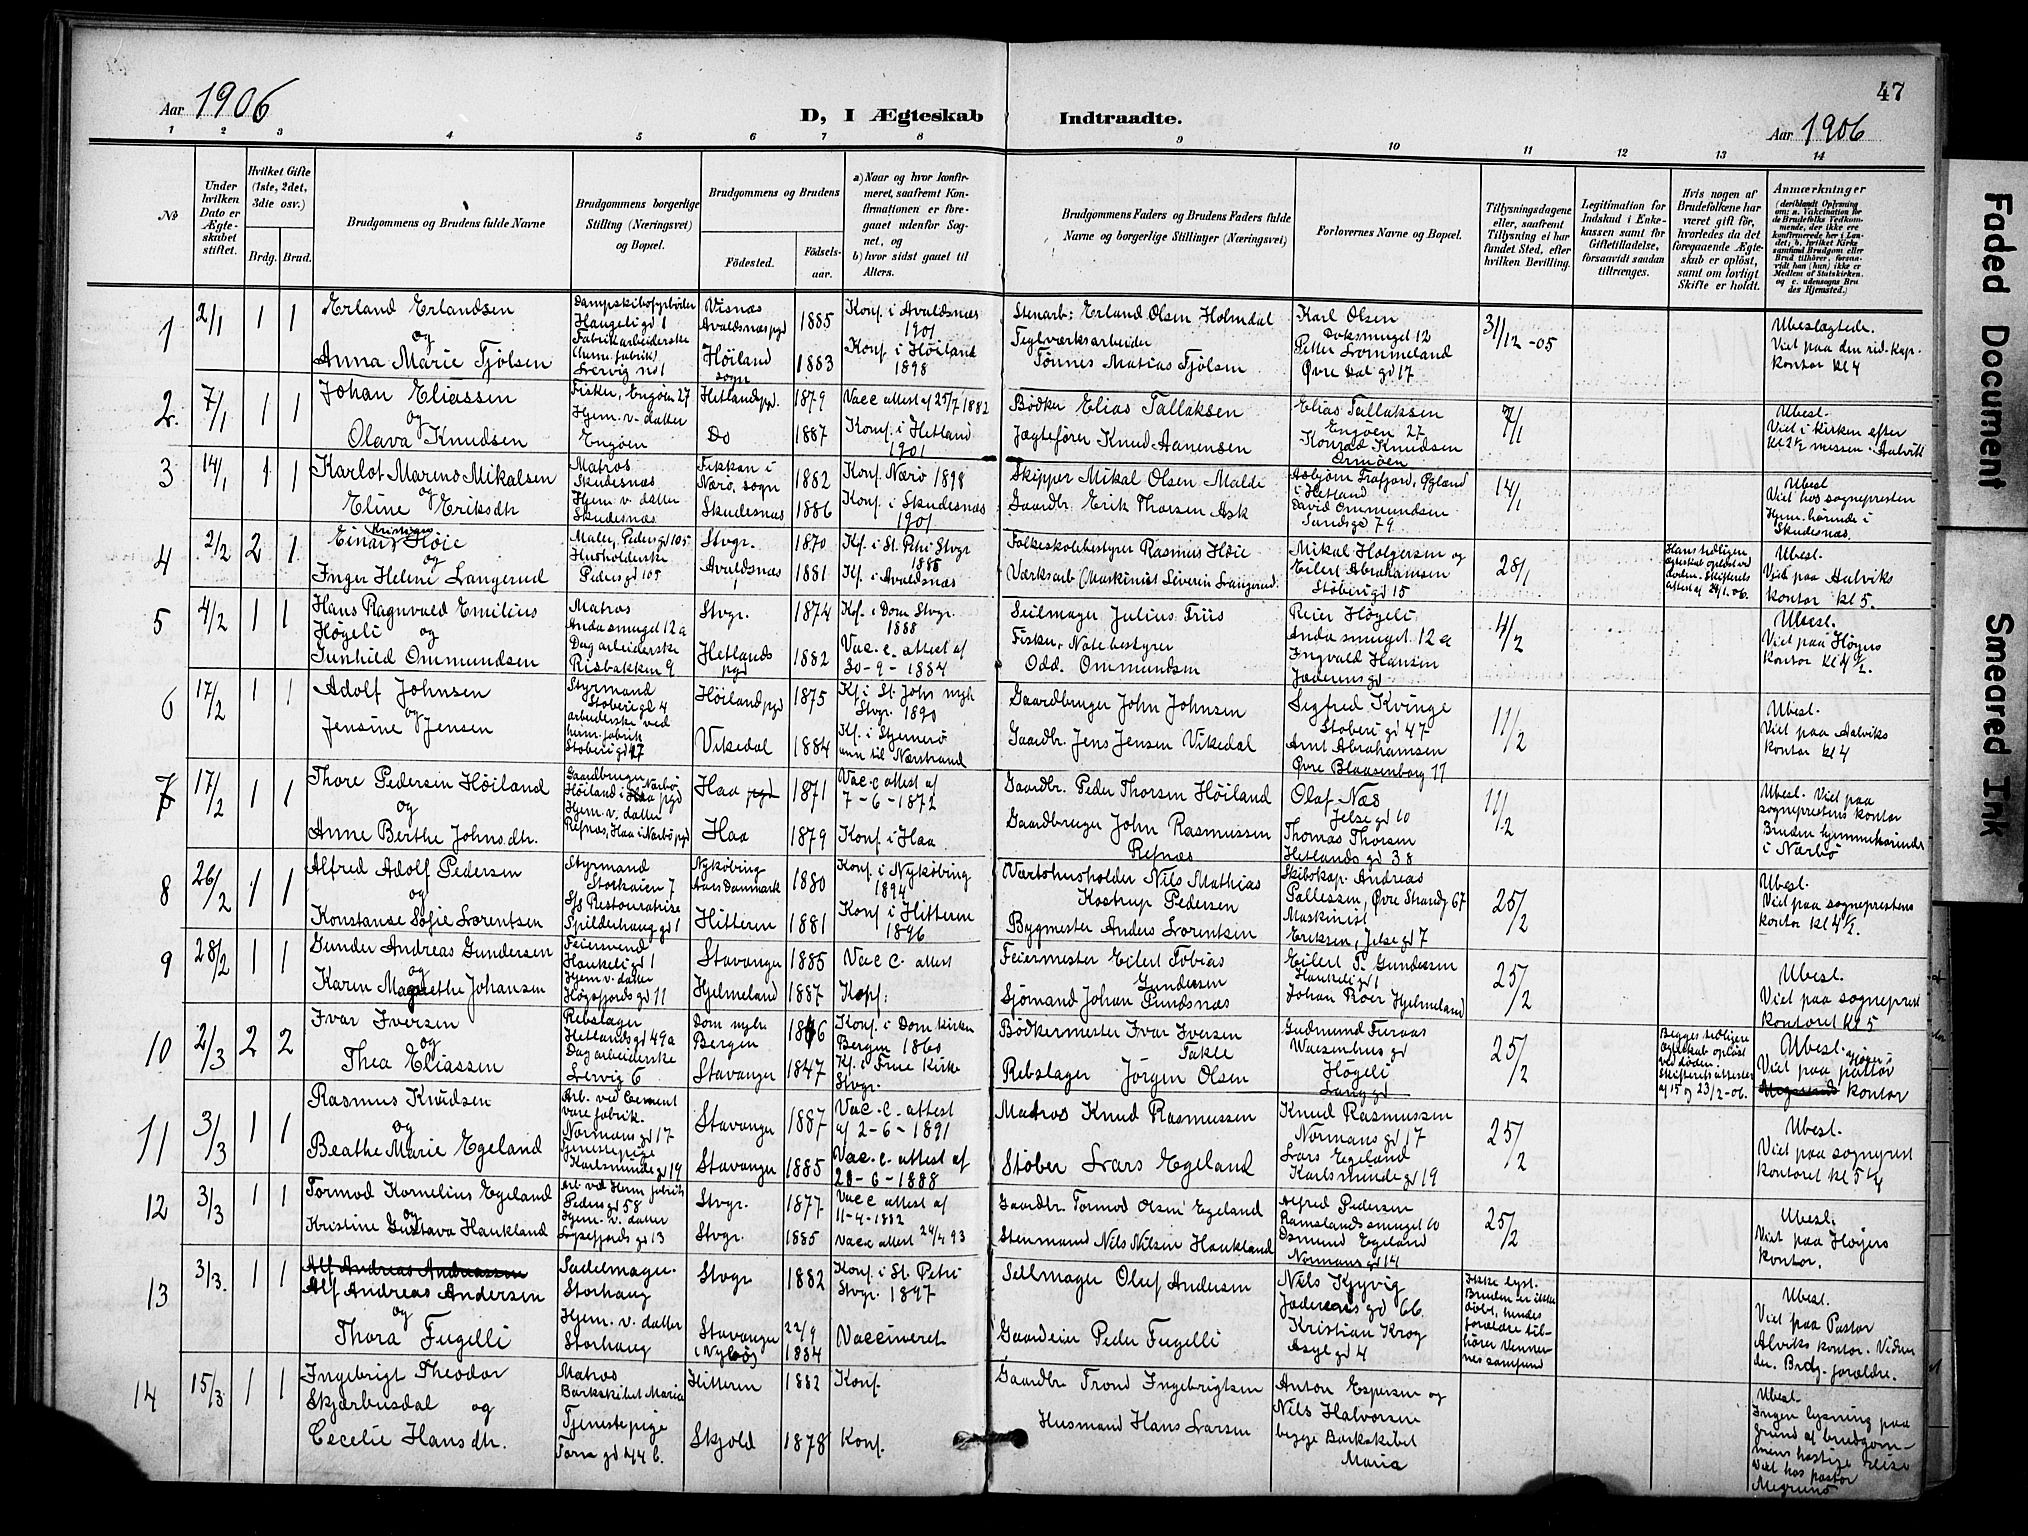 47
Aar 1906
D, I Ægteskab Indtraadte.
Aar 1906
1 2 3 4 5 6 7 8 9 10 11 12 13 14
№
Under hvilken Dato er Ægteskabet stiftet.
Hvilket Gifte (1ste, 2det, 3die osv.)
Brdg. Brud.
Brudgommens og Brudens fulde Navne
Brudgommens borgerlige Stilling (Næringsvei) og Bopæl.
Brudgommens og Brudens
Fødested.
Fødselsaar.
a) Naar og hvor konfirmeret, saafremt Konfirmationen er foregaaet udenfor Sognet, og
b) hvor sidst gaaet til Alters.
Brudgommens Faders og Brudens Faders fulde Navne og borgerlige Stillinger (Næringsvei)
Forlovernes Navne og Bopæl.
Tillysningsdagene eller, saafremt Tillysning ei har fundet Sted, efter hvilken Bevilling.
Legitimation for Indskud i Enkekassen samt for Giftetilladelse, forsaavidt saadan tiltrænges.
Hvis nogen af Brudefolkene har været gift før, hvorledes da det foregaaende Ægteskab er opløst, samt om lovligt Skifte er holdt.
Anmærkninger
(deriblandt Oplysning om: a. Vaccination for de Brudefolks Vedkommende, der ikke ere konfirmerede her i Landet; b. hvilket Kirkesamfund Brudgom eller Brud tilhører, forsaavidt han (hun) ikke er Medlem af Statskirken, og c. udensogns Brudes Hjemsted.)
1 2/1 1 1 Erland Erlandsen
og
Anna Marie Tjölsen
Dampskibsfyrbøder
Haugeligd 1
Fabrikarbeiderske
(herm. fabrik)
Lervig no 1
Visnæs
Avaldsnæs pgd
Høiland
sogn
1885
1883
Konf. i Avaldsnæs
1901
Konf. i Høiland
1898
Stenarb: Erland Olsen Holmdal
Teglværksarbeider
Tönnes Matias Tjölsen
Karl Olsen
Doksmuget 12
Petter Lommeland
Øvre Dal gd 17
31/12-05
Ubeslægtede.
Viet paa den red. kap.
kontor kl 4
2. 7/1 1 1 Johan Eliassen
og
Olava Knudsen
Fisker, Engøen 27
Hjem. v. datter
Engøen
Hetland pgd.
Do
1879
1887
Vacc attest af 25/7 1882
Konf. i Hetland
1901
Bødker Elias Tallaksen
Jægtefører Knud Aanensen
Elias Tallaksen
Engøen 27
Konrad Knudsen
Ormøen
7/1
Ubesl.
Viet i kirken efter
kl 2½ messen. Aalvik
3 14/1 1 1 Karlot Marino Mikalsen
og
Eline Eriksdtr
Matros
Skudesnæs
Hjem. v. datter
Skudesnæs
Fikkan i
Nærø, sogn
Skudesnæs
1882
1886
Konf. Nærø 1898
Konf. i Skudesnæs
1901
Skipper Mikal Olsen Malde
Gaardbr. Erik Thorsen Ask
Asbjørn Trafjord, Byland
i Hetland
David Ommundsen
Sundsgd 79.
14/1
Ubesl
Viet hos sognepresten
Hjem. hörende i
Skudesnæs.
4 2/2 2 1 Einar Høie
og
Inger Helene Langerud
Maler, Pedersgd 105
Husholderske
Pedersgd 105
Stvgr.
Avaldsnæs
1870
1881
Kf. i St. Petri Stvgr
1885
Kf. i Avaldsnæs
Folkeskolebestyrer Rasmus Høie
Værksarb (Maskinist Severin Langerud.
Mikal Holgersen og
Eilert Abrahamsen
Støberigd 15
28/1
Hans tidligere
Ægteskab opløst ved
döden. Skifterets
attest af 24/1. 06.
Ubesl.
Viet paa Aalviks
kontor kl 5.
5 4/2 1 1 Hans Ragnvald Emilius
Høgeli og
Gunhild Ommundsen
Matros
Andasmuget 12a
Dagarbeiderske
Risbakken 9
Stvgr.
Hetlands
pgd
1874
1882
Kf. i Dom Stvgr.
1888
Vac. c. attest af
30-9-1884
Seilmager Julius Friis
Fisker, Notebestyrer
Odd. Ommundsen
Reier Høgeli
Andasmuget. 12a
Ingvald Hansen
Jæderensgd
4/2
Ubesl.
Viet paa Høyers
kontor kl 4½.
6 17/2 1 1 Adolf Johnsen
og
Jensine Jensen
Styrmand
Støberigd 4
arbeiderske ved
herm. fabrik
Støberigd 47
Høiland pgd
Vikedal
1875
1884
Kf. i St. Johs mgh
Stvgr. 1890
Kf. i Stjernerø
ann til Nærstrand
Gaardbruger John Johnsen
Gaardbr. Jens Jensen Vikedal
Sigfred Kvinge
Støberigd 47
Arnt Abrahamsen
Øvre Blaasenborg 17
11/2
Ubesl.
Viet paa Aalviks
kontor kl 4
7 17/2 1 1 Thore Pedersen Høiland
og
Anne Berthe Johnsdtr.
Gaardbruger
Høiland i Nærbø pgd
Hjem. v. datter
Refnæs, Haa i Nærbø pgd
Haa pgd
Haa
1871
1879
Vac. c attest af
7-6-1872
Konf. i Haa
Gaardbr. Peder Thorsen Høiland
Gaardbruger John Rasmussen
Refnæs
Olaf Næs
Jelsegd 10
Thomas Thorsen
Hetlandsgd 38
11/2
Ubesl. Viet paa
sogneprestens kontor
Bruden hjemmehørende
i Nærbø
8 26/2 1 1 Alfred Adolf Pedersen
og
Konstanse Sofie Lorentsen
Styrmand
Storkaien 7
S/S Restauratrise
Spilderhauggd 1
Nykøbing
Mors Danmark
Hitteren
1880
1881
Konf. i Nykøbing
1894
Konf. i Hitteren
1896
Værtshusholder Nils Mathias
Kostrup Pedersen
Bygmester Anders Lorentsen
Skibskap. Andreas
Pallesen, Øvre Strandg 67
Maskinist
Eriksen, Jelsegd 7
25/2
Ubesl.
Viet paa sogneprestens
kontor kl 4½.
9 28/2 1 1 Gunder Andreas Gundersen
og
Karen Magrethe Johansen
Feiersvend
Haukeligd 1
Hjem v. datter
Høgsfjordsgd 11
Stavanger
Hjelmeland
1885
1887
Vac c. attest
Konf:
Feiermester Eilert Tobias
Gundersen
Sjömand Johan Pundsnæs
Eilert T. Gundersen
Haukeligd 1
Johan Roer Hjelmeland
25/2
Ubesl.
Viet paa sogneprest
kontoret kl 5
10 2/3 2 2 Ivar Iversen
og
Thea Eliassen
Rebslager
Hetlandsgd 49a
Dagarbeiderske
Lervig 6
Dom mgh
Bergen
Stavanger
1846
1847
Konf. i Dom kirken
Bergen 1860
Kf. i Frue Kirke
Stvgr.
Bødkermester Ivar Iversen
Takle
Rebslager Jörgen Olsen
Gudmund Furaas
Waisenhusgd
Høgeli
Langgd
25/2
Begges tidligere
ægteskab opløst
ved döden.
Skifterets attester
af 15 og 23/2-06.
Ubesl.
Viet paa pastor
kontor
11 3/3 1 1 Rasmus Knudsen
og
Beathe Marie Egeland
Arb. ved Cement
varefabrik.
Normansgd 17
Tjenestepige
Karlsmindegd 19
Stavanger
Stavanger
1887
1885
Vac. c. attest
af 2-6-1891
Vac. c. attest af
28-6-1888
Matros Knud Rasmussen
Støber Lars Egeland
Knud Rasmussen
Normansgd 17
Lars Egeland
Karlsmindegd 19
25/2
Ubesl.
Viet paa sogneprest
kontoret kl 5¼
12 3/3 1 1 Tormod Kornelius Egeland
og
Kristine Gustava Haukland
Arb ved Herm fabrik
Pedersgd 58
Hjem. v. datter
Lysefjordsgd 13
Stvgr.
Stvgr.
1877
1885
Vac c attest af
11-4-1882
Vac c attest 24/4 93
Gaardbr. Tormod Olsen Egeland
Stenmand Nils Nilsen Haukland
Alfred Pedersen
Ramslandssmuget 10
Osmund Egeland
Normansgd 14
25/2
Ubesl.
Viet paa Høyers
kontor.
13 3/3. 1 1 Alf Andreas Andreassen
Alf Andreas Andersen
og
Thora Fugelli
Sadelmager
Storhaug
Hjem. v. datter
Storhaug
Stvgr
Stavanger
1882
22/9
1884
Konf. i St. Petri
Stvgr. 1897
Vaccineret
Seilmager Oluf Andersen
Gaardeier Peder Fugelli
Nils Kyvig
Jæderensgd 66.
Kristian Krog
Asylgd 4
Ikke lyst.
Bruden er ikke
døbt, hendes
forældre til-
hører Venner-
nes samfund
Ubesl.
Viet paa Pastor
Alviks kontor. Vidner
de. Brdg. forældre.
14 15/3. 1 1 Ingebrigt Theodor
Skjærbusdal og
Cecelie Hansdtr.
Matros
Barkskibet Maria
Tjenestepige
Tornegd 44 b.
Hitteren
Skjold
1882
1878
Konf.
Konf.
Gaardbr Trond Ingebrigtsen
Husmand Hans Larsen
Anton Espersen og
Nils Halvorsen
begge Barkskibet
Maria
Ubesl.
Ingen lysning paa
grund af brudgom-
mens hastige reise
Viet hos pastor
Faded Document
Smeared Ink